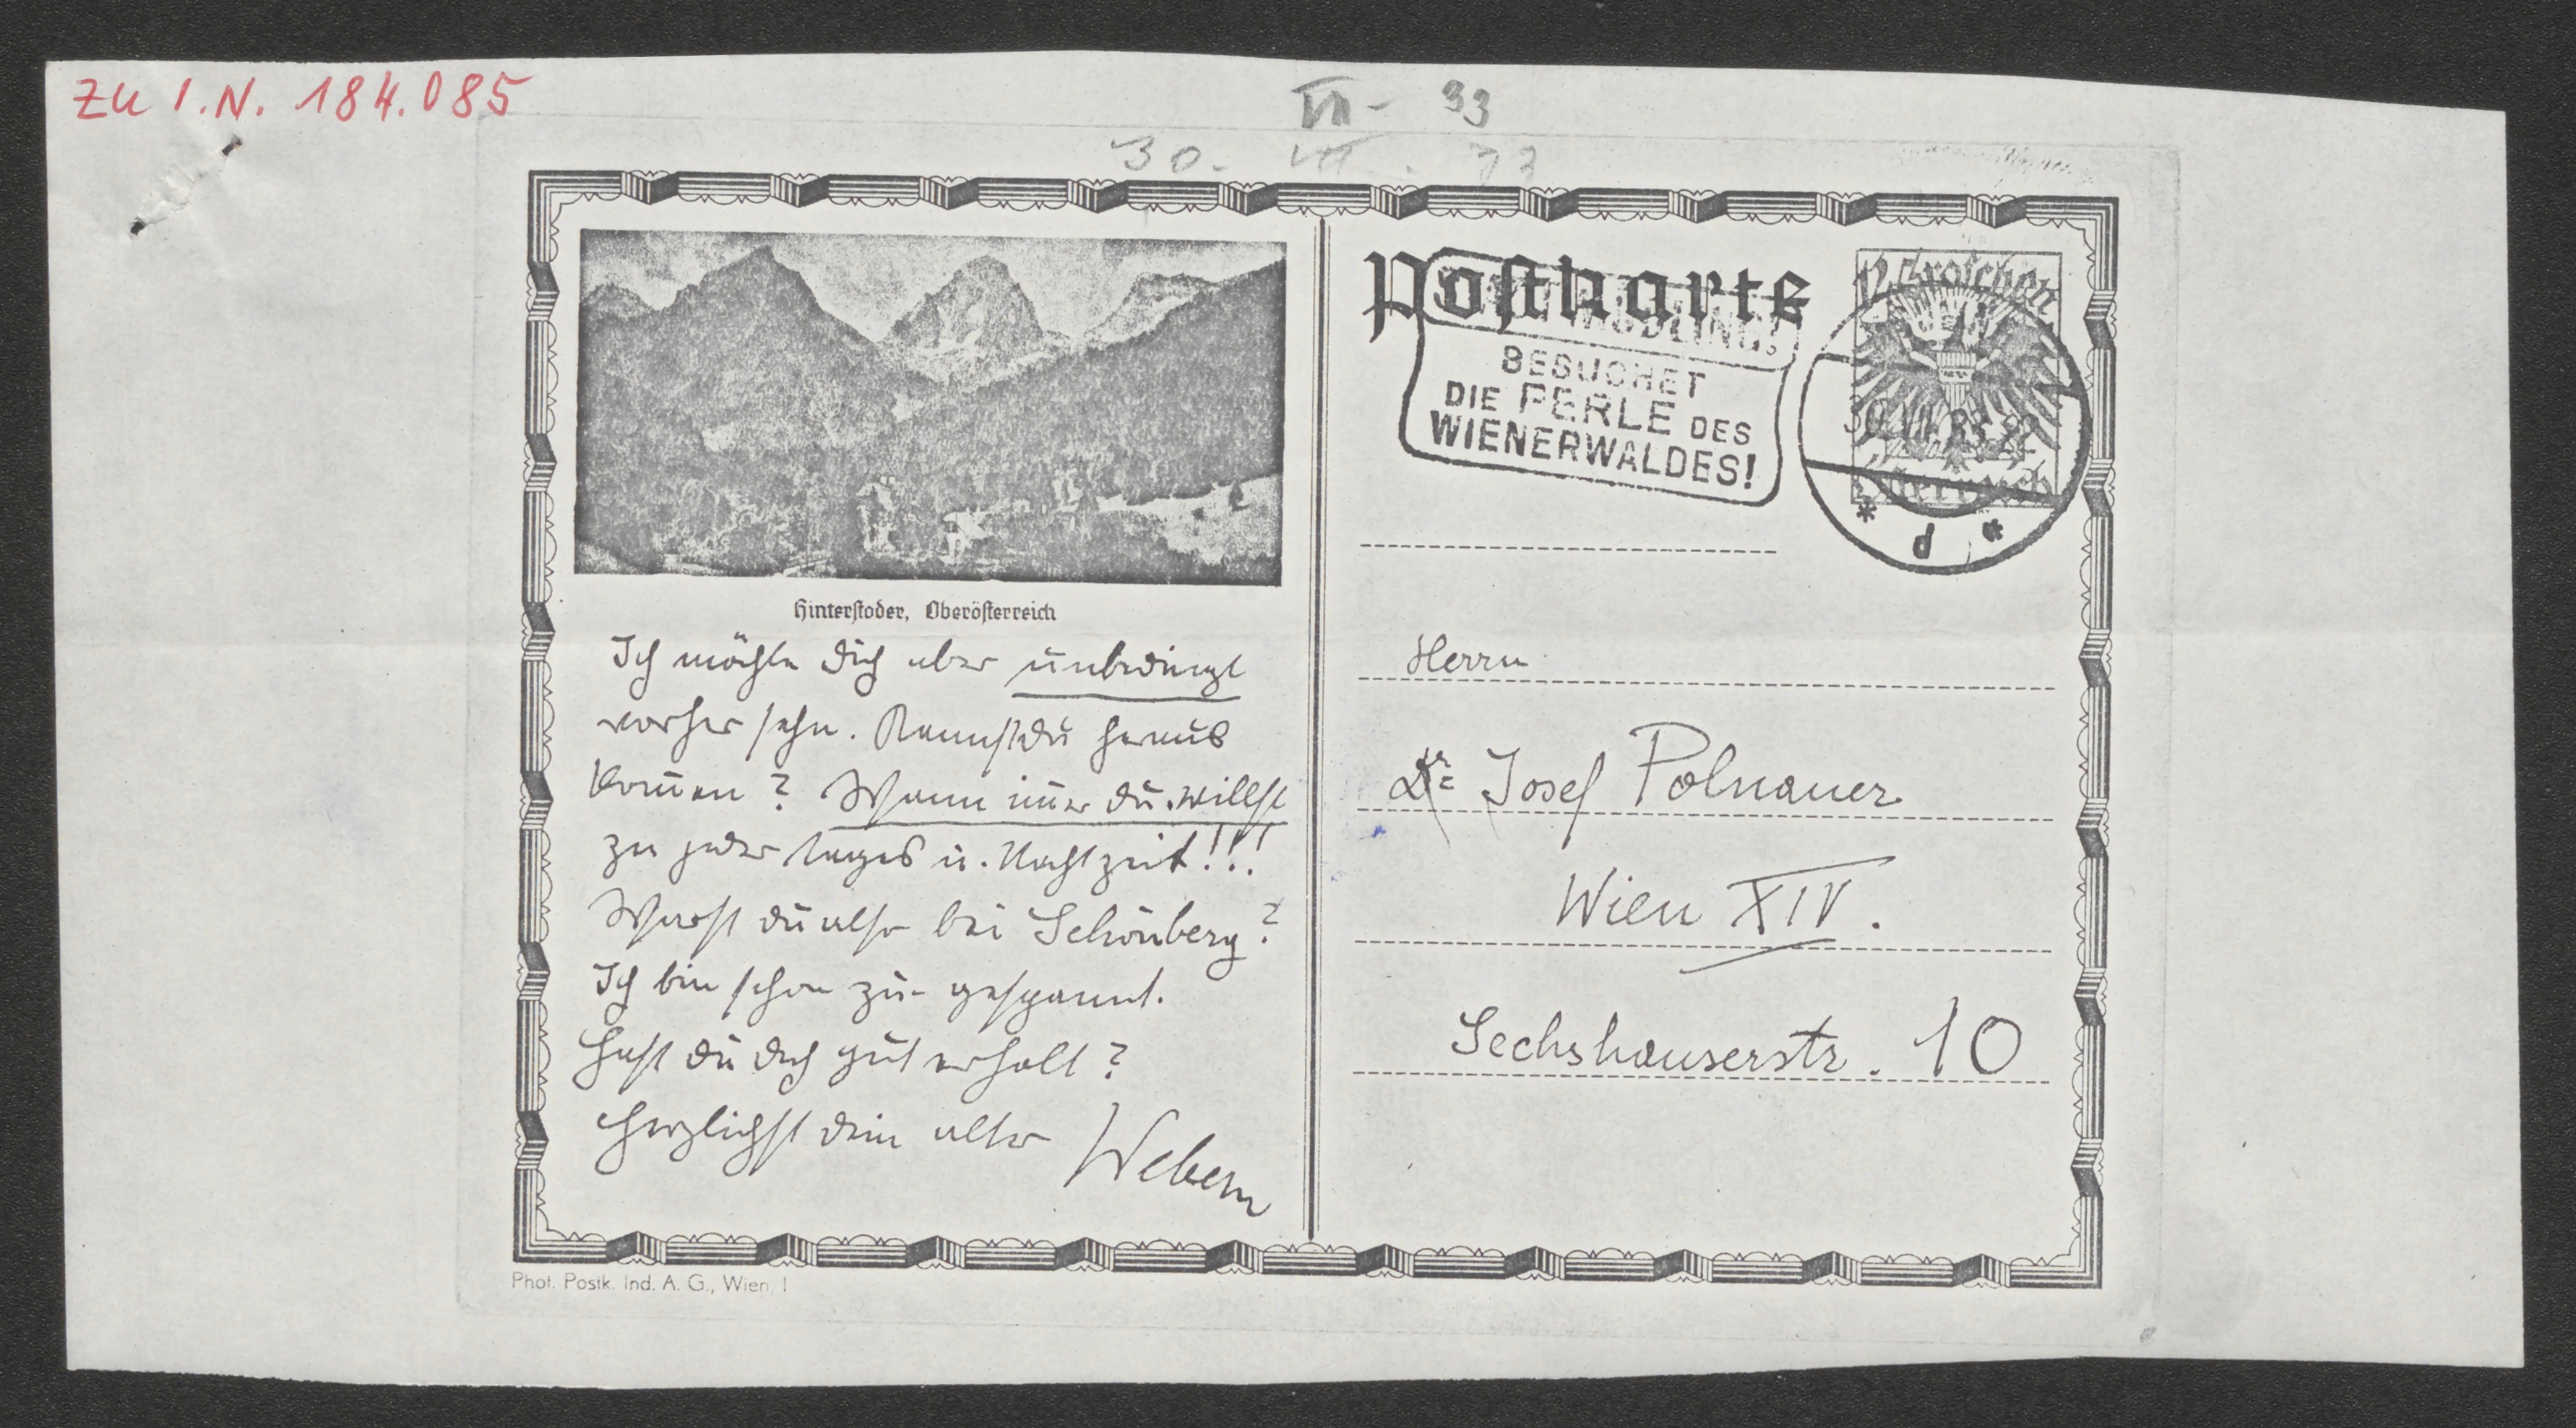 ZU I.N. 184.085
VII - 33
30. VII. 33
Hinterstoder, Oberösterreich
Ich möchte Dich aber unbedingt
vorher sehn. Kannst du heraus
kom̅en? Wann im̅er du willst
zu jeder Tages u. Nachtzeit!!!
Warst du also bei Schönberg?
Ich bin schon zu gespannt.
Hast du dich gut erholt?
Herzlichst dein alter
Webern
Phot. Postk. Ind. A. G., Wien, I
Postkarte
MÖDLING!
BESUCHET
DIE PERLE DES
WIENERWALDES!
Groschen
Österreich
* d *
Herrn
Dr Josef Polnauer
Wien XIV.
Sechshauserstr. 10